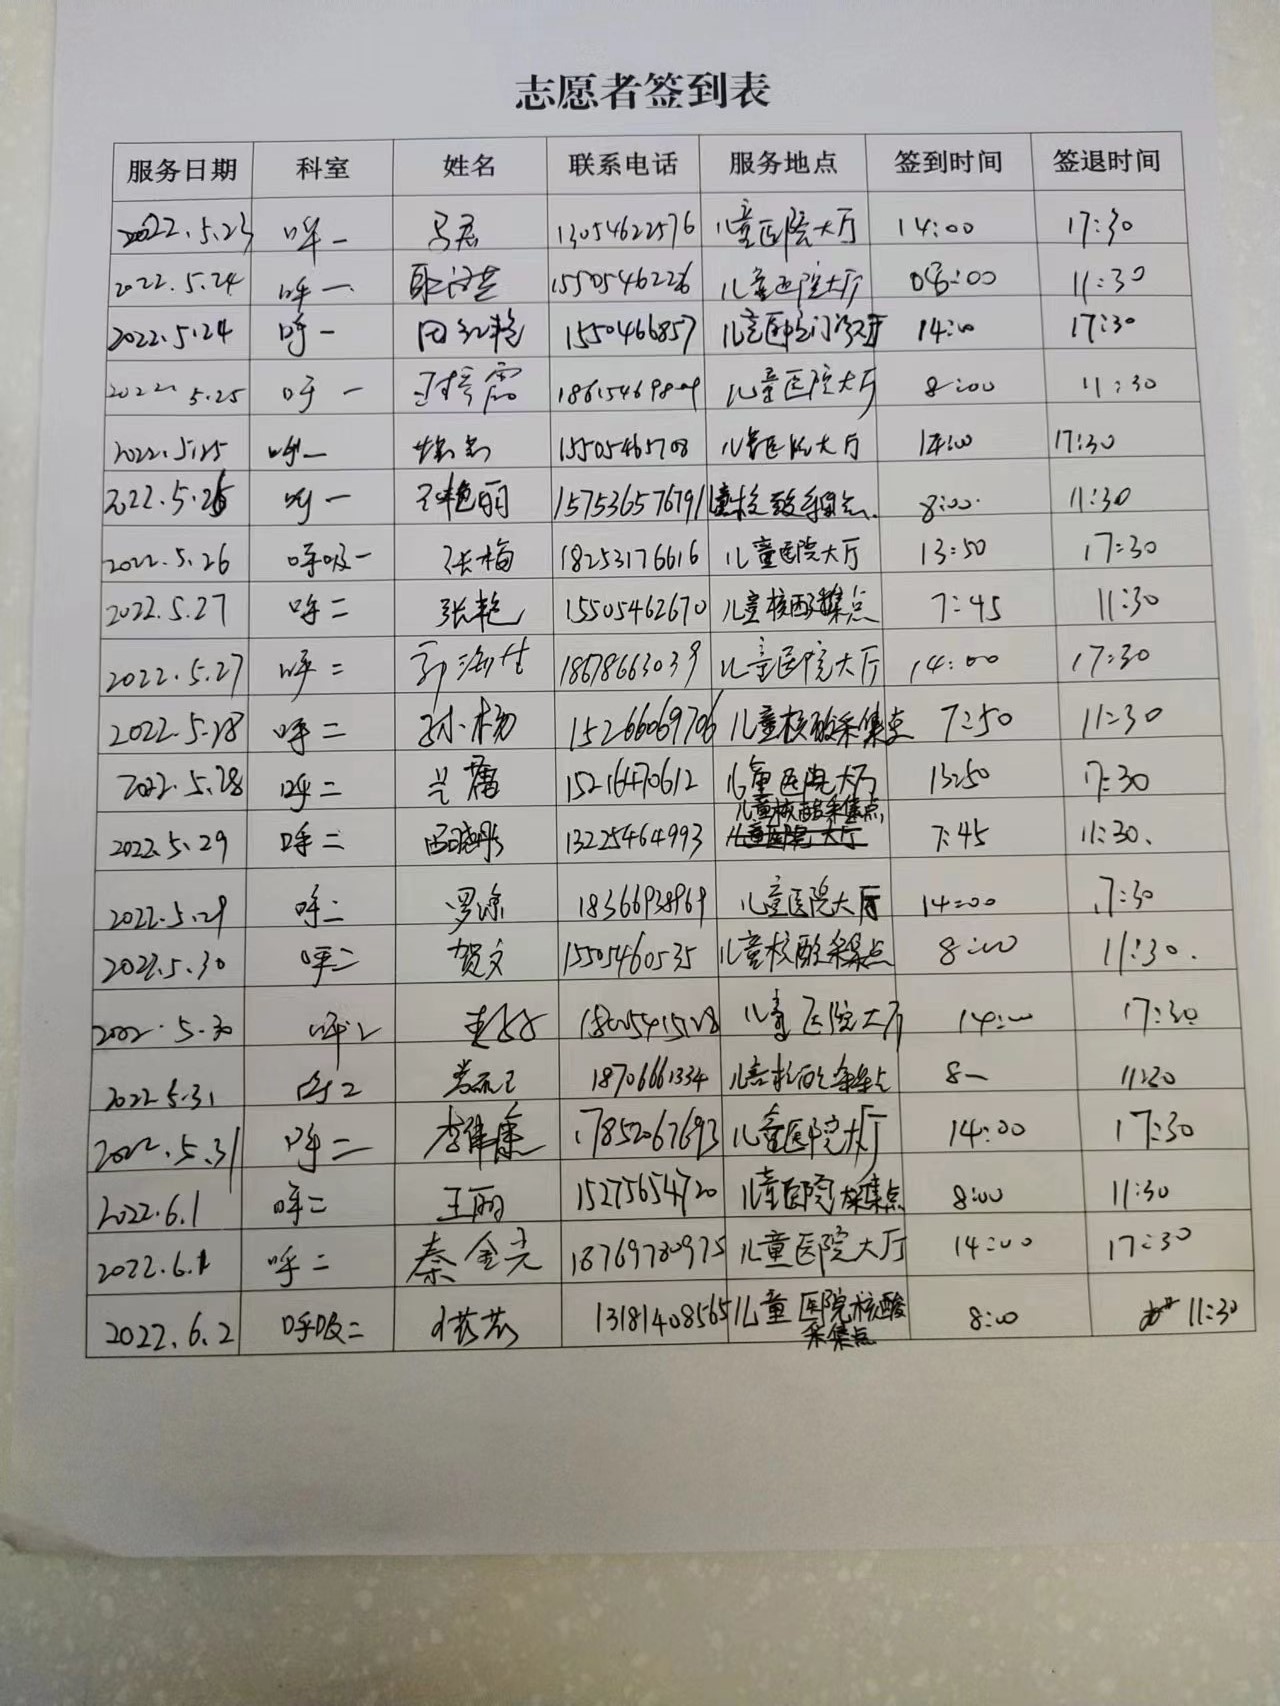 志愿者签到表
服务日期 科室 姓名 联系电话 服务地点 签到时间 签退时间
2022.5.23 呼一 马君 13054622576 儿童医院大厅 14:00 17:30
2022.5.24 呼一 1550546226 儿童医院大厅 08:00 11:30
2022.5.24 呼一 田红艳 1550466857 儿童医院门诊大厅 14:00 17:30
2022.5.25 呼一 儿童医院大厅 8:00 11:30
2022.5.25 呼一 15505465708 儿童医院大厅 14:00 17:30
2022.5.26 呼一 王艳丽 15753657679 儿童核酸采集点 8:00 11:30
2022.5.26 呼吸一 张梅 18253176616 儿童医院大厅 13:50 17:30
2022.5.27 呼二 张艳 15505462670 儿童核酸采集点 7:45 11:30
2022.5.27 呼二 18678663039 儿童医院大厅 14:00 17:30
2022.5.28 呼二 孙杨 15266069706 儿童核酸采集点 7:50 11:30
2022.5.28 呼二 15216470612 儿童医院大厅 13:50 17:30
2022.5.29 呼二 13225464993 儿童核酸采集点 儿童医院大厅 7:45 11:30.
2022.5.29 呼二 罗琼 18366938969 儿童医院大厅 14:00 17:30
2022.5.30 呼二 贺文 15505460535 儿童核酸采集点 8:00 11:30.
2022.5.30 呼2 儿童医院大厅 14:00 17:30
2022.5.31 呼2 18706661334 儿童核酸采集点 8— 11:30
2022.5.31 呼二 李伟康 17852067693 儿童医院大厅 14:00 17:30
2022.6.1 呼二 王丽 15275654720 儿童医院采集点 8:00 11:30
2022.6.1 呼二 秦金光 18769780975 儿童医院大厅 14:00 17:30
2022.6.2 呼吸二 13181408565 儿童医院核酸 8:00 11:30
采集点